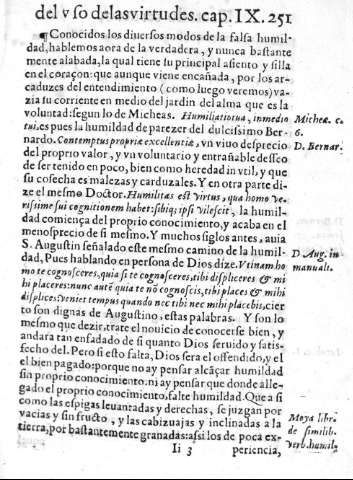 del vso delas virtudes. cap. IX. 251
¶Conocidos los diuersos modos de la falsa humil-
dad, hablemos aora de la verdadera, y nunca bastante
mente alabada, la qual tiene su principal asiento y silla
en el coraçon: que aunque viene encañada, por los ar-
caduzes del entendimiento (como luego veremos) va-
zia su corriente en medio del jardin del alma que es la
voluntad: segun lo de Micheas. Humiliatio tua, in medio
tui, es pues la humildad de parezer del dulcissimo Ber-
nardo. Contemptus propriæ excellentiæ, vn viuo desprecio
del proprio valor, y vn voluntario y entrañable desseo
de ser tenido en poco, bien como heredad in vtil, y que
su cosecha es malezas y carduzales. Y en otra parte di-
ze el mesmo Doctor. Humilitas est virtus, qua homo ve-
rissime sui cognitionem habet: sibiq; ipsi vilescit, la humil-
dad comiença del proprio conocimiento, y acaba en el
menosprecio de si mesmo. Y muchos siglos antes, auia
S. Augustin señalado este mesmo camino de la humil-
dad, Pues hablando en persona de Dios dize. Vtinam ho
mo te cognosceres, quia si te cognosceres, tibi displiceres & mi
hi placeres: nunc autē quia te nō cognoscis, tibi places & mihi
displices: veniet tempus quando nec tibi nec mihi placebis, cier
to son dignas de Augustino, estas palabras. Y son lo
mesmo que dezir, trate el nouicio de conocerse bien, y
andara tan enfadado de si quanto Dios seruido y satis-
fecho del. Pero si esto falta, Dios sera el offendido, y el
el bien pagado: porque no ay pensar alcãçar humildad
sin proprio conocimiento, ni ay pensar que donde alle-
gado el proprio conocimiento, falte humildad. Que a si
como las espigas leuantadas y derechas, se juzgan por
vacias y sin fructo, y las cabizuajas y inclinadas a la
tierra, por bastantemente granadas: asi los de poca ex-
Ii 3 periencia,
Micheæ. c.
6.
D. Bernar.
D. Aug. in
manuali.
Moya libr.
de similib.
verb. humil.